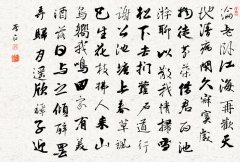 淪老卧江海再歡天
地清病閑久寂寞歲
物徒芬榮借君西池
遊聊以散我情掃雪
松下去捫蘿石道行
謝公池塘上春草颯
已生花枝拂人來山
鳥向我鳴田家有美
酒落日與之傾醉罷
弄歸月遙欣稚子迎